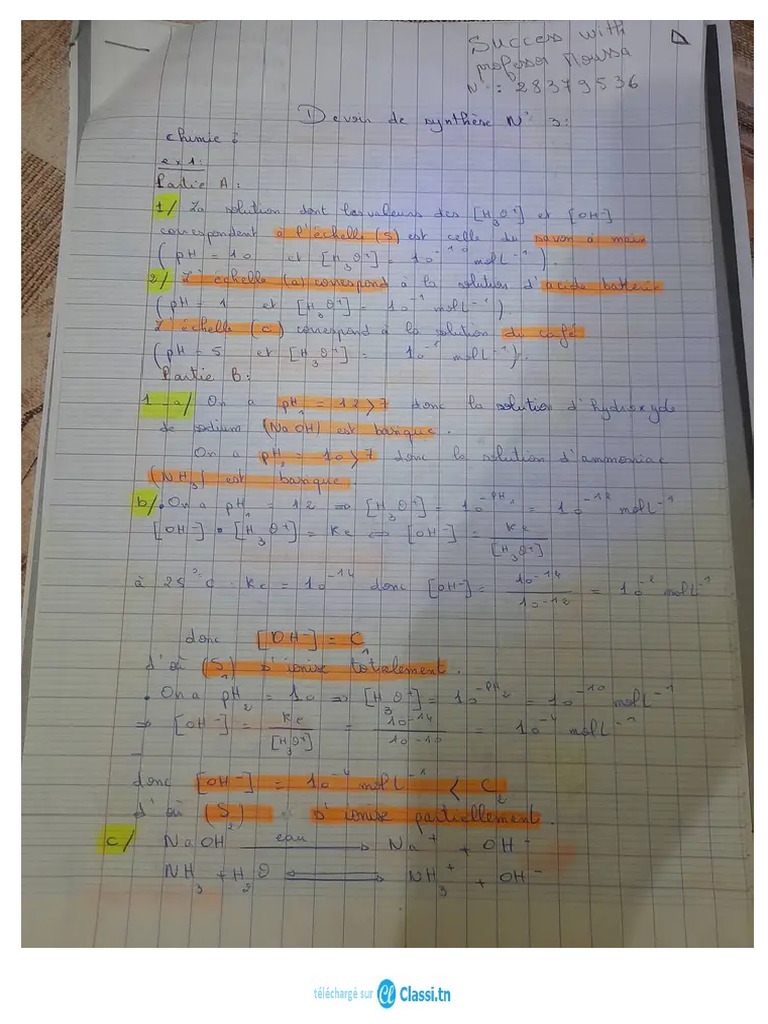 Success with
professor Moussa
N°: 28379536
Devoir de synthèse N° 3:
chimie :
ex 1:
Partie A:
1/ La solution dont les valeurs des [H3O+] et [OH-]
correspondent à l'échelle (5) est celle du savon à main
(pH = 10 et [H3O+] = 10^-10 mol L^-1).
2/ L'échelle (a) correspond à la solution d'acide batterie
(pH = 1 et [H3O+] = 10^-1 mol L^-1).
L'échelle (c) correspond à la solution du café
(pH = 5 et [H3O+] = mol L^-1).
Partie B:
1-a/ On a pH1 = 12 > 7 donc la solution d'hydroxyde
de sodium (NaOH) est basique.
On a pH2 = 10 > 7 donc la solution d'ammoniac
(NH3) est basique.
b/. On a pH1 = 12 => [H3O+] = 10^-pH1 = 10^-12 mol L^-1
[OH-] • [H3O+] = Ke <=> [OH-] = Ke / [H3O+]
à 25°C . Ke = 10^-14 donc [OH-] = 10^-14 / 10^-12 = 10^-2 mol L^-1
donc [OH-] = C1
d'où (S1) s'ionise totalement.
. On a pH2 = 10 => [H3O+] = 10^-pH2 = 10^-10 mol L^-1
=> [OH-] = Ke / [H3O+] = 10^-14 / 10^-10 = 10^-4 mol L^-1
donc [OH-] = 10^-4 mol L^-1 < C2
d'où (S2) s'ionise partiellement.
c/ NaOH eau → Na+ + OH-
NH3 + H2O ⇌ NH3+ + OH-
téléchargé sur Classi.tn